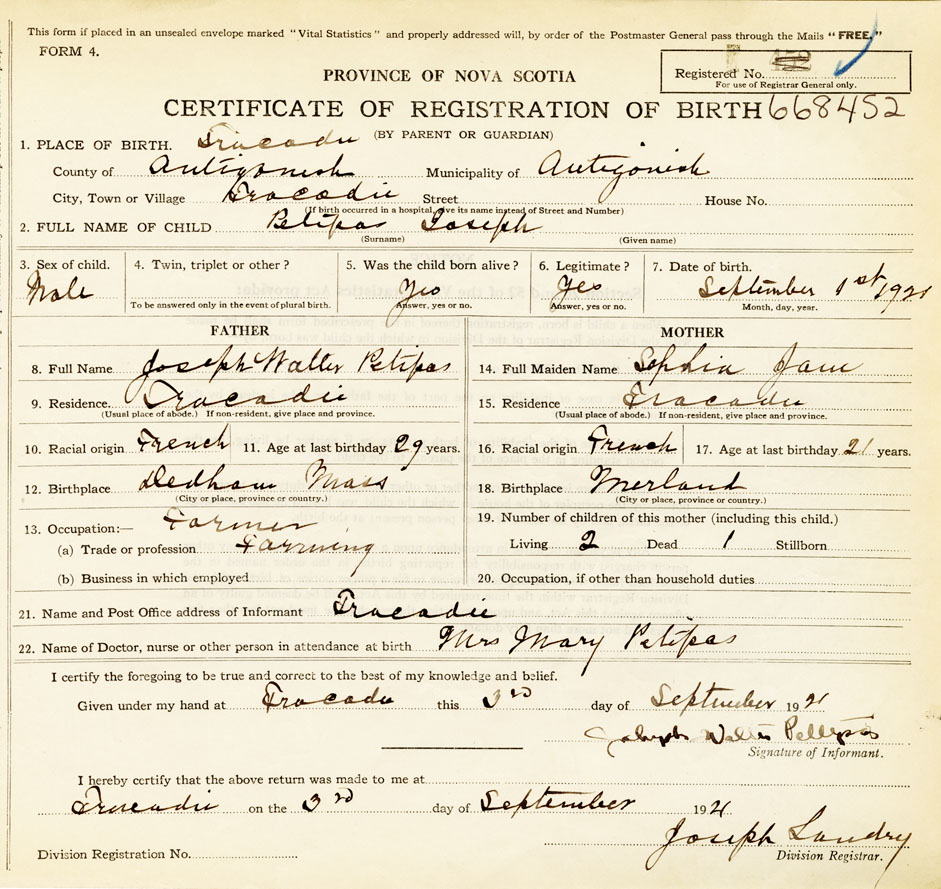 This form if placed in an unsealed envelope marked "Vital Statistics" and properly addressed will, by order of the Postmaster General pass through the Mails "FREE."
FORM 4.
Registered No.
For use of Registrar General only.
PROVINCE OF NOVA SCOTIA
CERTIFICATE OF REGISTRATION OF BIRTH 668452
(BY PARENT OR GUARDIAN)
1. PLACE OF BIRTH. Tracadie
County of Antigonish Municipality of Antigonish
City, Town or Village Tracadie Street House No.
(If birth occurred in a hospital, give its name instead of Street and Number)
2. FULL NAME OF CHILD Petipas Joseph
(Surname) (Given name)
3. Sex of child. 4. Twin, triplet or other? 5. Was the child born alive? 6. Legitimate? 7. Date of birth.
Male Yes Yes September 1st 1921
To be answered only in the event of plural birth. Answer, yes or no. Answer, yes or no. Month, day, year.
FATHER
8. Full Name Joseph Walter Petipas
9. Residence. Tracadie
(Usual place of abode.) If non-resident, give place and province.
10. Racial origin French 11. Age at last birthday 29 years.
12. Birthplace Dedham Mass
(City or place, province or country.)
13. Occupation:— Farmer
(a) Trade or profession Farming
(b) Business in which employed
MOTHER
14. Full Maiden Name Sophia Jane
15. Residence Tracadie
(Usual place of abode.) If non-resident, give place and province.
16. Racial origin French 17. Age at last birthday 21 years.
18. Birthplace Merland
(City or place, province or country.)
19. Number of children of this mother (including this child.)
Living 2 Dead 1 Stillborn
20. Occupation, if other than household duties
21. Name and Post Office address of Informant Tracadie
22. Name of Doctor, nurse or other person in attendance at birth Mrs Mary Petipas
I certify the foregoing to be true and correct to the best of my knowledge and belief.
Given under my hand at Tracadie this 3rd day of September 1921
Walter
Signature of Informant.
I hereby certify that the above return was made to me at
Tracadie on the 3rd day of September 1921
Joseph Landry
Division Registrar.
Division Registration No.